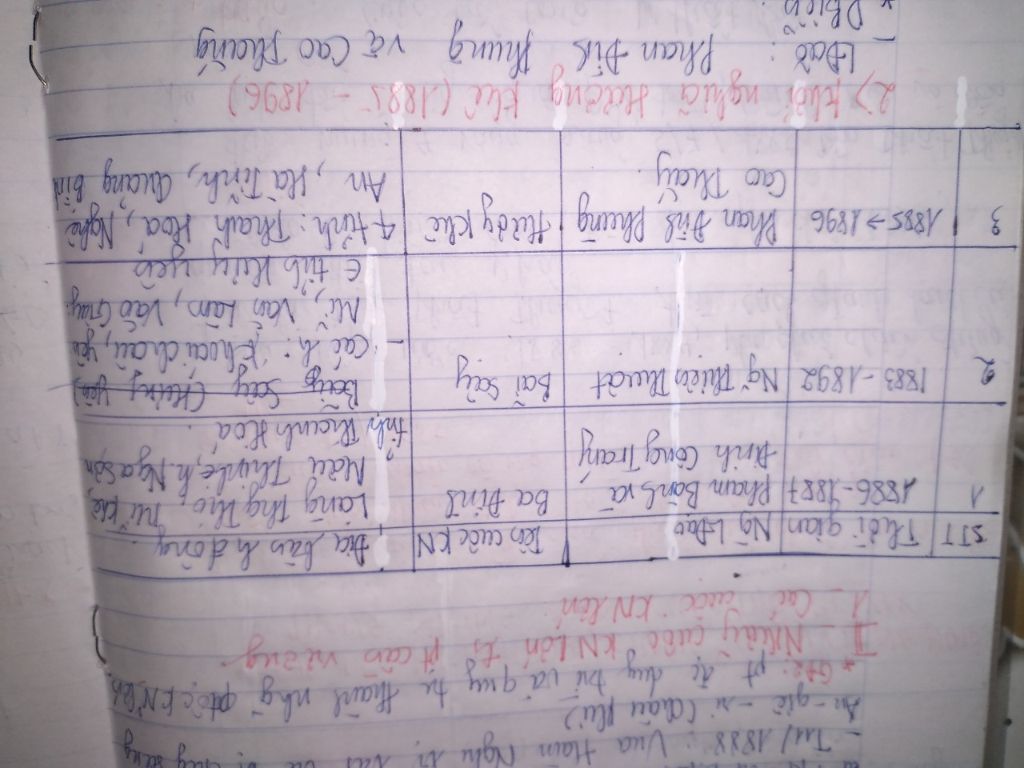 - T11/ 1888 : Vua Hàm Nghi bị bắt và bị đày sang
An-giê-ri (châu Phi)
* Gđ2: pt đc duy trì và quy tụ thành nhg cuộc KN lớn.
II - Nhữg cuộc KN lớn tg pt cần vương
1 - Các cuộc KN lớn
STT | Thời gian | Ng L.Đạo | Tên cuộc KN | Địa bàn h động
1 | 1886-1887 | Phạm Bành và | Ba Đình | Làng Thg Thọ,
Đinh Công Tráng | Mậu Thịnh, h Nga Sơn
tỉnh Thanh Hoá.
2 | 1883-1892 | Ng~ Thiện Thuật | Bãi Sậy | Bãi Sậy (Hưng Yên)
- Các h : Khoái châu,
Mĩ, Văn Lâm, Văn Giang
€ tỉnh Hưng Yên
3 | 1885→1896 | Phan Đình Phùng | Hương Khê | 4 tỉnh: Thanh Hoá, Nghệ
Cao Thắng. | An, Hà Tĩnh, Quảng Bình
2) Khởi nghĩa Hương Khê (1885 - 1896)
LĐạo : Phan Đình Phùng và Cao Thắng